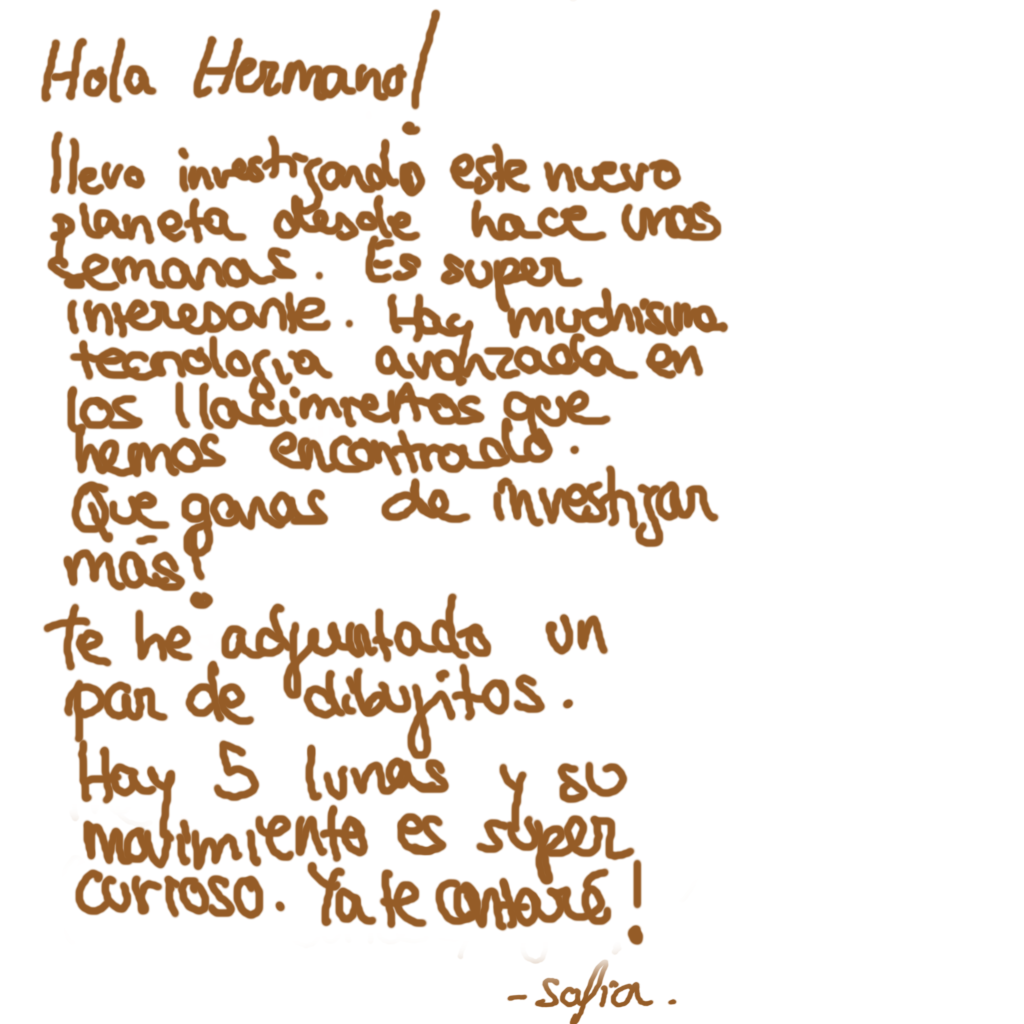 Hola Hermano!
llevo investigando este nuevo
planeta desde hace unas
semanas. Es super
interesante. Hay muchisima
tecnologia avanzada en
los llacimientos que
hemos encontrado.
Que ganas de investigar
más!
te he adjuntado un
par de dibujitos.
Hay 5 lunas y su
movimiento es super
curioso. Ya te contaré!
-Sofia.